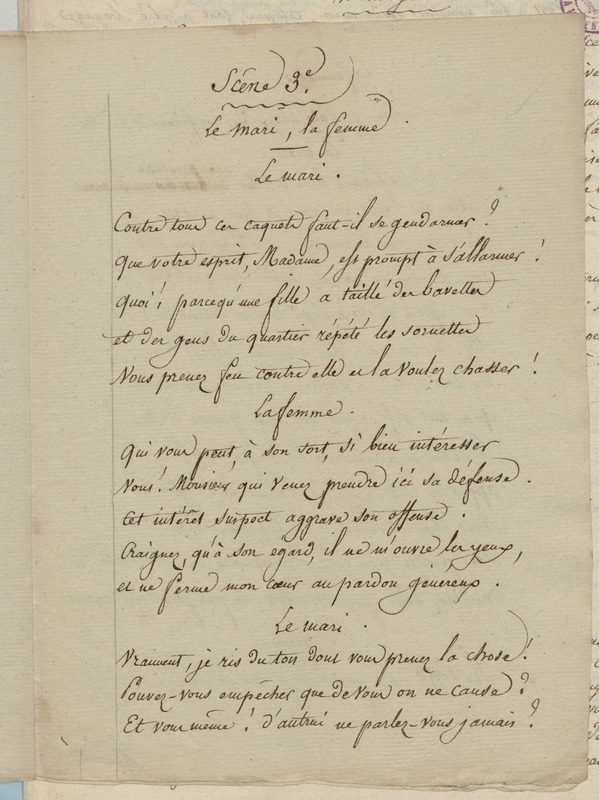 Scéne 3.e
Le mari, la femme.
Le mari.
Contre tous ces caquets faut-il se gendarmer ?
Que votre esprit, Madame, est prompt à s'allarmer !
Quoi ! parcequ'une fille a taillé des bavettes
et des gens du quartier répété les sornettes
Vous prenez feu contre elle et la voulez chasser !
La femme.
Qui vous peut à son sort, si bien intéresser
Vous ! Monsieur qui venez prendre ici sa défense.
Cet intérêt suspect aggrave son offense.
Craignez, qu'à son égard, il ne m'ouvre les yeux,
et ne ferme mon cœur au pardon généreux.
Le mari.
Vraiment, je ris du ton dont vous prenez la chose !
Pouvez-vous empêcher que de vous on ne cause ?
Et vous même ! d'autrui ne parlez-vous jamais ?